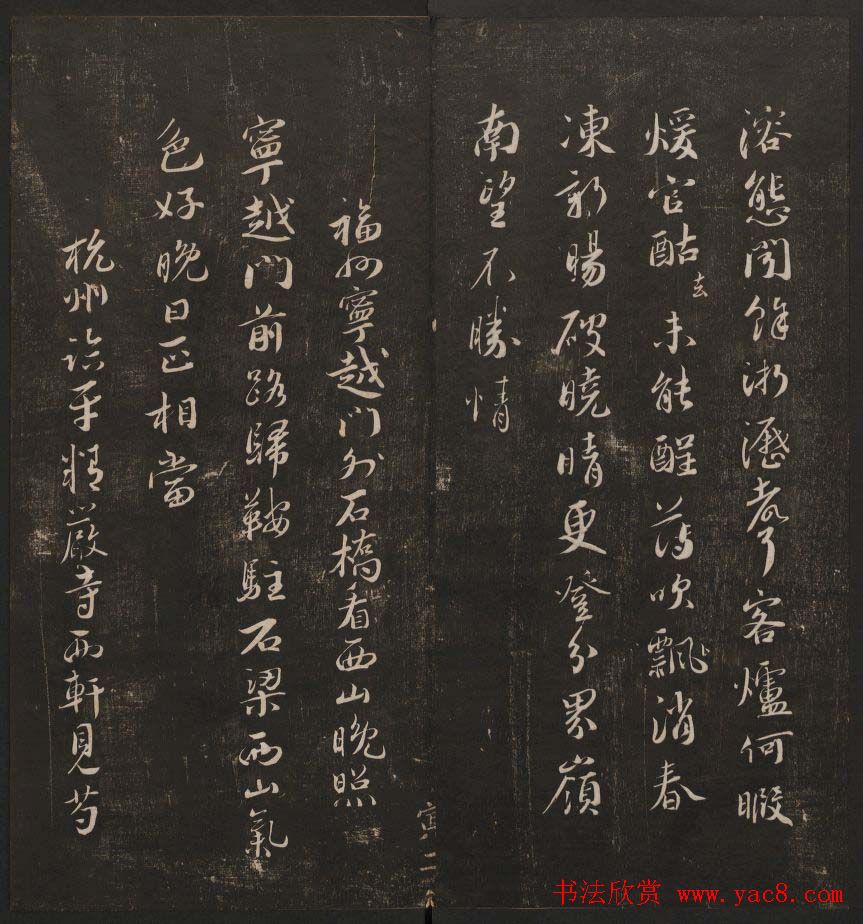 溶態閒餘淅瀝聲客爐何暇
煖官酤去未能醒薄吹飄消春
凍新暘破曉晴更登分界嶺
南望不勝情
福州寧越門外石橋看西山晚照
寧越門前路歸鞍駐石梁西山氣
色好晚日正相當
杭州臨平精嚴寺西軒見芍
二
书法欣赏 www.yac8.com